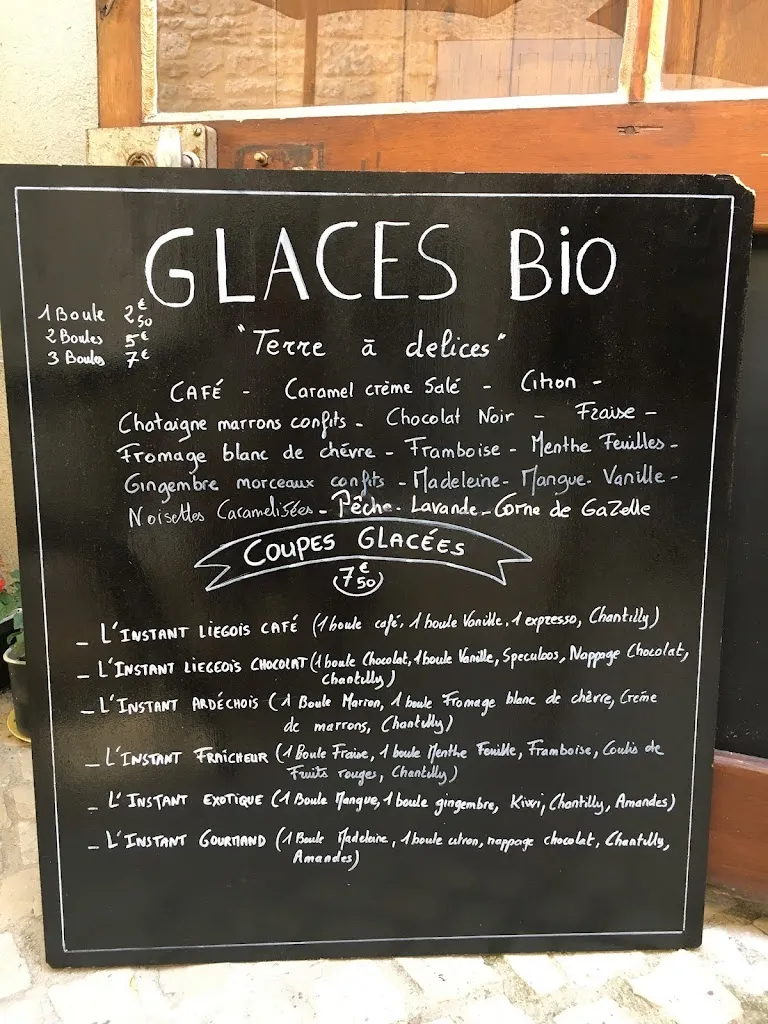 GLACES BiO
1 Boule 2€50
2 Boules 5€
3 Boules 7€
"Terre à delices"
CAFÉ - Caramel crème Salé - Citron -
Chataigne marrons confits - Chocolat Noir - Fraise -
Fromage blanc de chévre - Framboise - Menthe Feuilles -
Gingembre morceaux confits - Madeleine - Mangue - Vanille -
Noisettes Caramelisées - Pêche - Lavande - Corne de GaZelle
COUPES GLACÉES
7€50
- L'INSTANT LIEGOIS CAFÉ (1 boule café, 1 boule Vanille, 1 expresso, Chantilly)
- L'INSTANT LIEGEOIS CHOCOLAT (1 boule Chocolat, 1 boule Vanille, Speculoos, Nappage Chocolat,
chantilly)
- L'INSTANT ARDÉCHOIS (1 Boule Marron, 1 boule Fromage blanc de chèvre, Creme
de marrons, Chantilly)
- L'INSTANT FRAÎCHEUR (1 Boule Fraise, 1 boule Menthe Feuille, Framboise, Coulis de
Fruits rouges, Chantilly)
- L'INSTANT EXOTIQUE (1 Boule Mangue, 1 boule gingembre, Kiwi, Chantilly, Amandes)
- L'INSTANT GOURMAND (1 Boule Madeleine, 1 boule citron, nappage chocolat, Chantilly,
Amandes)